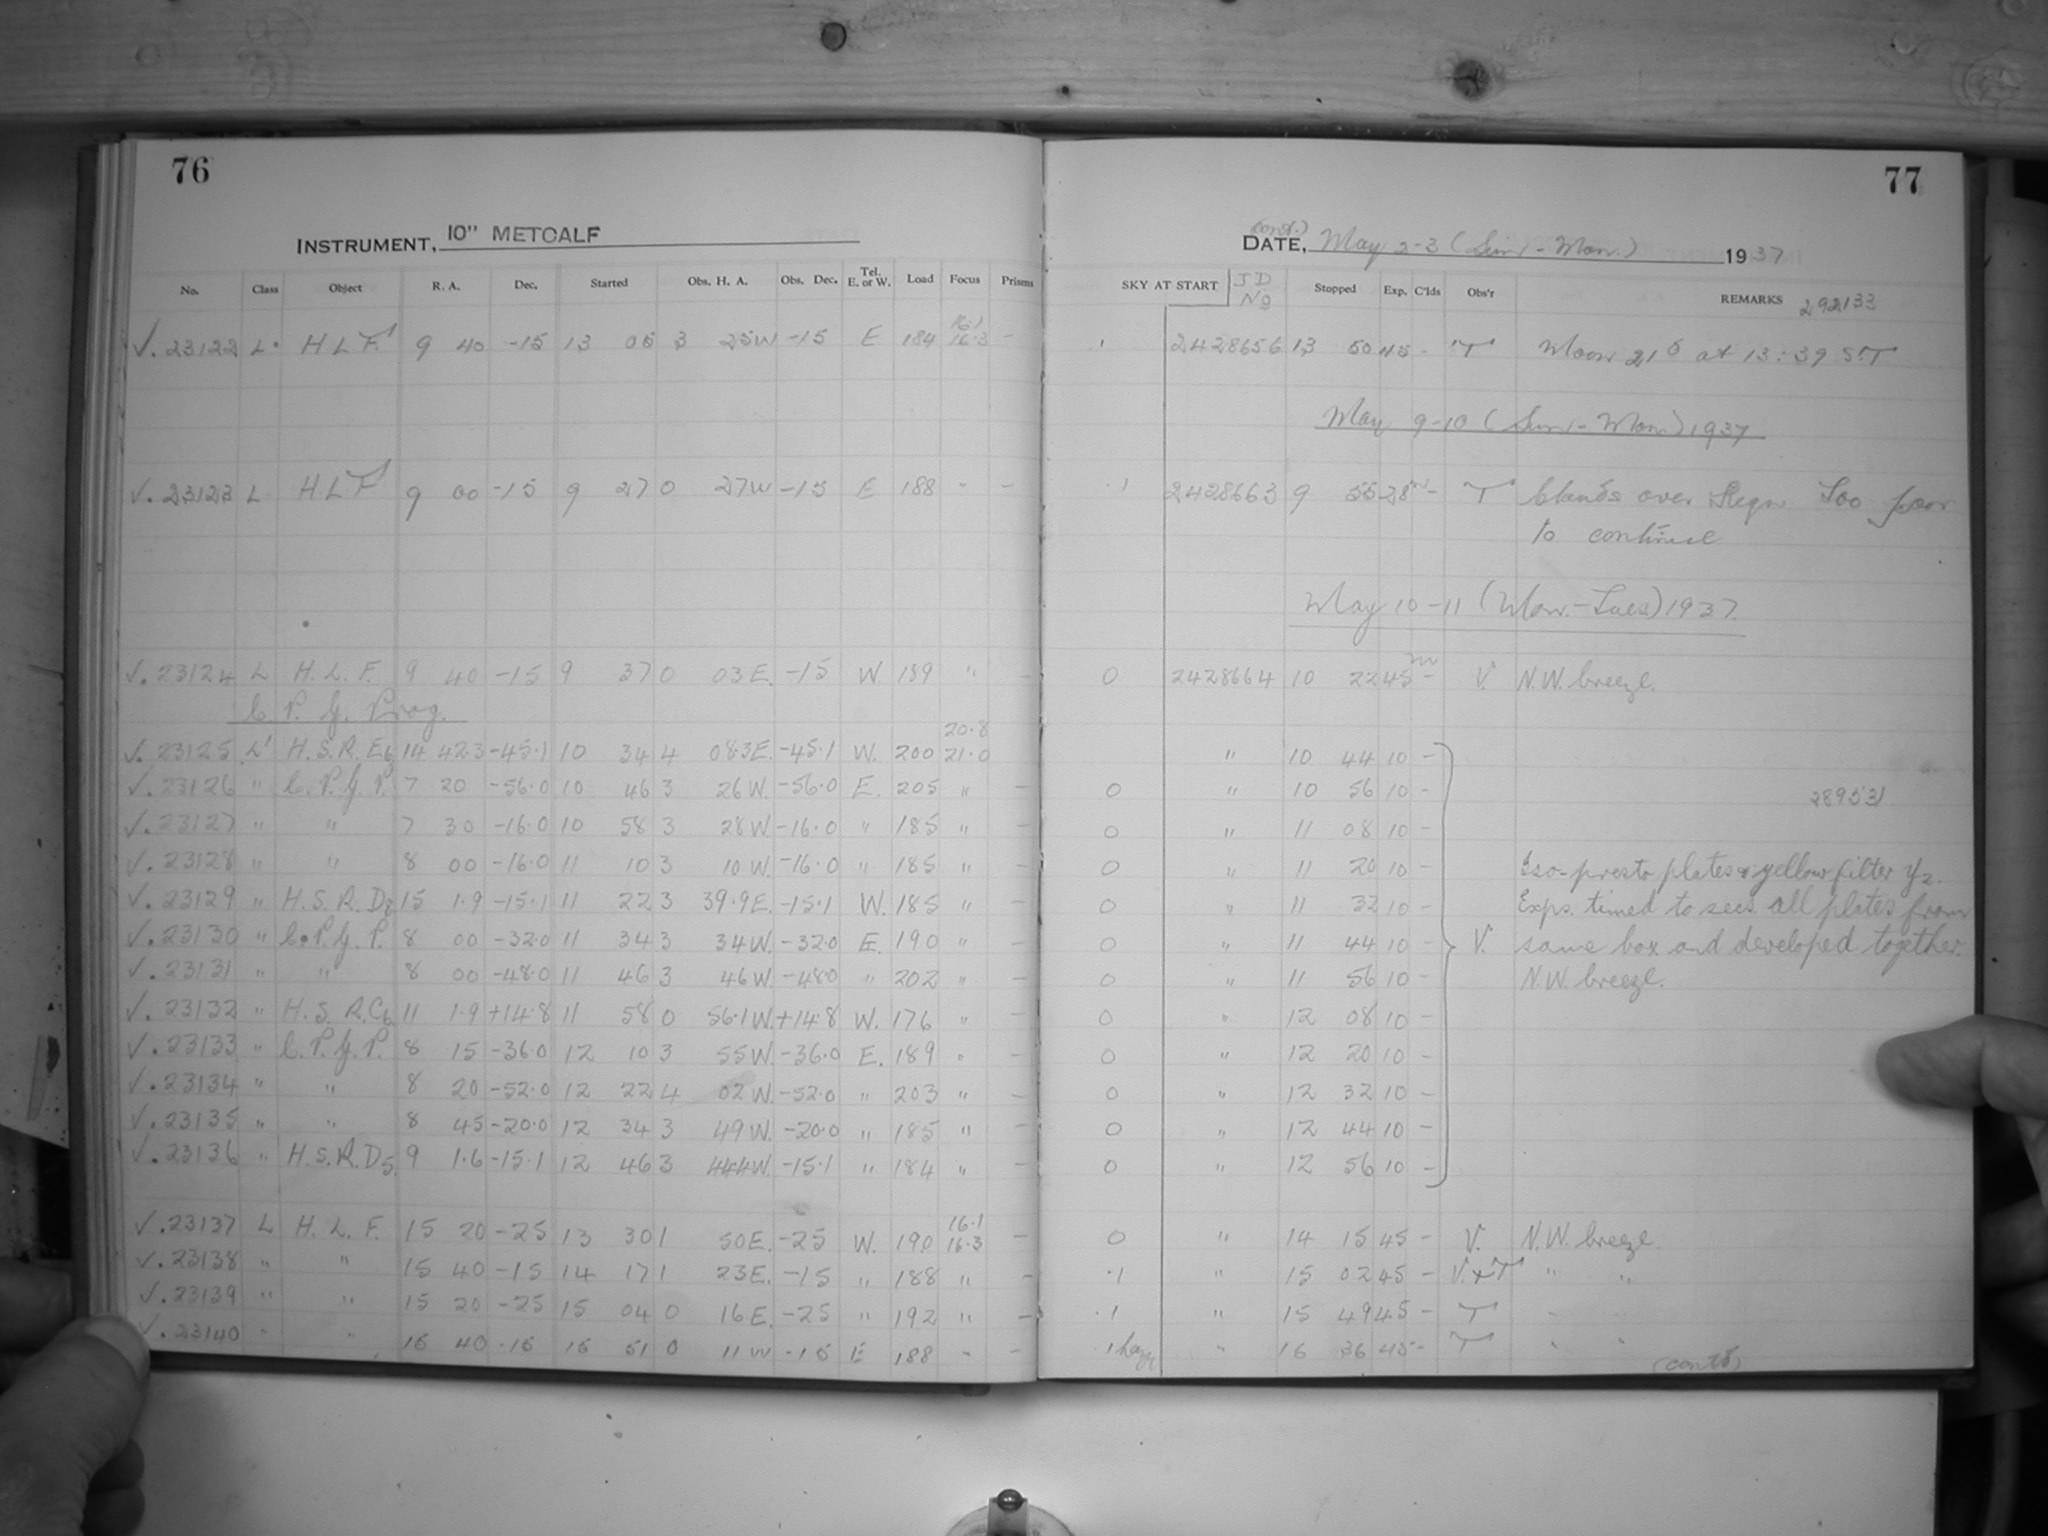 76
INSTRUMENT, 10" METCALF
No. Class Object R. A. Dec. Started Obs. H. A. Obs. Dec. Tel. E. or W. Load Focus Prisms
√. 23122 L HLF 9 40 -15 13 05 3 25W -15 E 184 16.1 16.3 -
√. 23123 L HLF 9 00 -15 9 27 0 27W -15 E 188 " -
√. 23124 L H. L. F. 9 40 -15 9 37 0 03E. -15 W 189 " -
C. P. J. Prog.
√. 23125 L' H.S.R.E6 14 42.3 -45.1 10 34 4 08.3E. -45.1 W. 200 20.8 21.0
√. 23126 " C.P.J.P. 7 20 -56.0 10 46 3 26W. -56.0 E. 205 " -
√. 23127 " " 7 30 -16.0 10 58 3 28W. -16.0 " 185 " -
√. 23128 " " 8 00 -16.0 11 10 3 10W. -16.0 " 185 " -
√. 23129 " H.S.R.D8 15 1.9 -15.1 11 22 3 39.9E. -15.1 W. 185 " -
√. 23130 " C.P.J.P. 8 00 -32.0 11 34 3 34W. -32.0 E. 190 " -
√. 23131 " " 8 00 -48.0 11 46 3 46W. -48.0 " 202 " -
√. 23132 " H.S.R.C6 11 1.9 +14.8 11 58 0 56.1W. +14.8 W. 176 " -
√. 23133 " C.P.J.P. 8 15 -36.0 12 10 3 55W. -36.0 E. 189 " -
√. 23134 " " 8 20 -52.0 12 22 4 02W. -52.0 " 203 " -
√. 23135 " " 8 45 -20.0 12 34 3 49W. -20.0 " 185 " -
√. 23136 " H.S.R.D5 9 1.6 -15.1 12 46 3 44.4W. -15.1 " 184 " -
√. 23137 L H. L. F. 15 20 -25 13 30 1 50E. -25 W. 190 16.1 16.3 -
√. 23138 " " 15 40 -15 14 17 1 23E. -15 " 188 " -
√. 23139 " " 15 20 -25 15 04 0 16E. -25 " 192 " -
√. 23140 " " 15 40 -15 15 51 0 11W -15 E 188 " -
77
(cont.)
DATE, May 2-3 (Sun. - Mon.) 1937
SKY AT START JD No Stopped Exp. C'lds Obs'r REMARKS 292133
1 2428656 13 50 45 - T Moon 21° at 13:39 ST
May 9-10 (Sun. - Mon.) 1937
.1 2428663 9 55 28m - T Clouds over Region Too poor
to continue
May 10-11 (Mon. - Tues) 1937.
0 2428664 10 22 45m - V. N.W. breeze.
" 10 44 10 -
0 " 10 56 10 - 289531
0 " 11 08 10 -
0 " 11 20 10 - Iso-presto plates & yellow filter Y2.
0 " 11 32 10 - Exps. timed to secs. all plates from
0 " 11 44 10 - V. same box and developed together.
0 " 11 56 10 - N.W. breeze.
0 " 12 08 10 -
0 " 12 20 10 -
0 " 12 32 10 -
0 " 12 44 10 -
0 " 12 56 10 -
0 " 14 15 45 - V. N.W. breeze
.1 " 15 02 45 - V. & T " "
.1 " 15 49 45 - T "
.1 hazy " 16 36 45 - T " "
(contd)